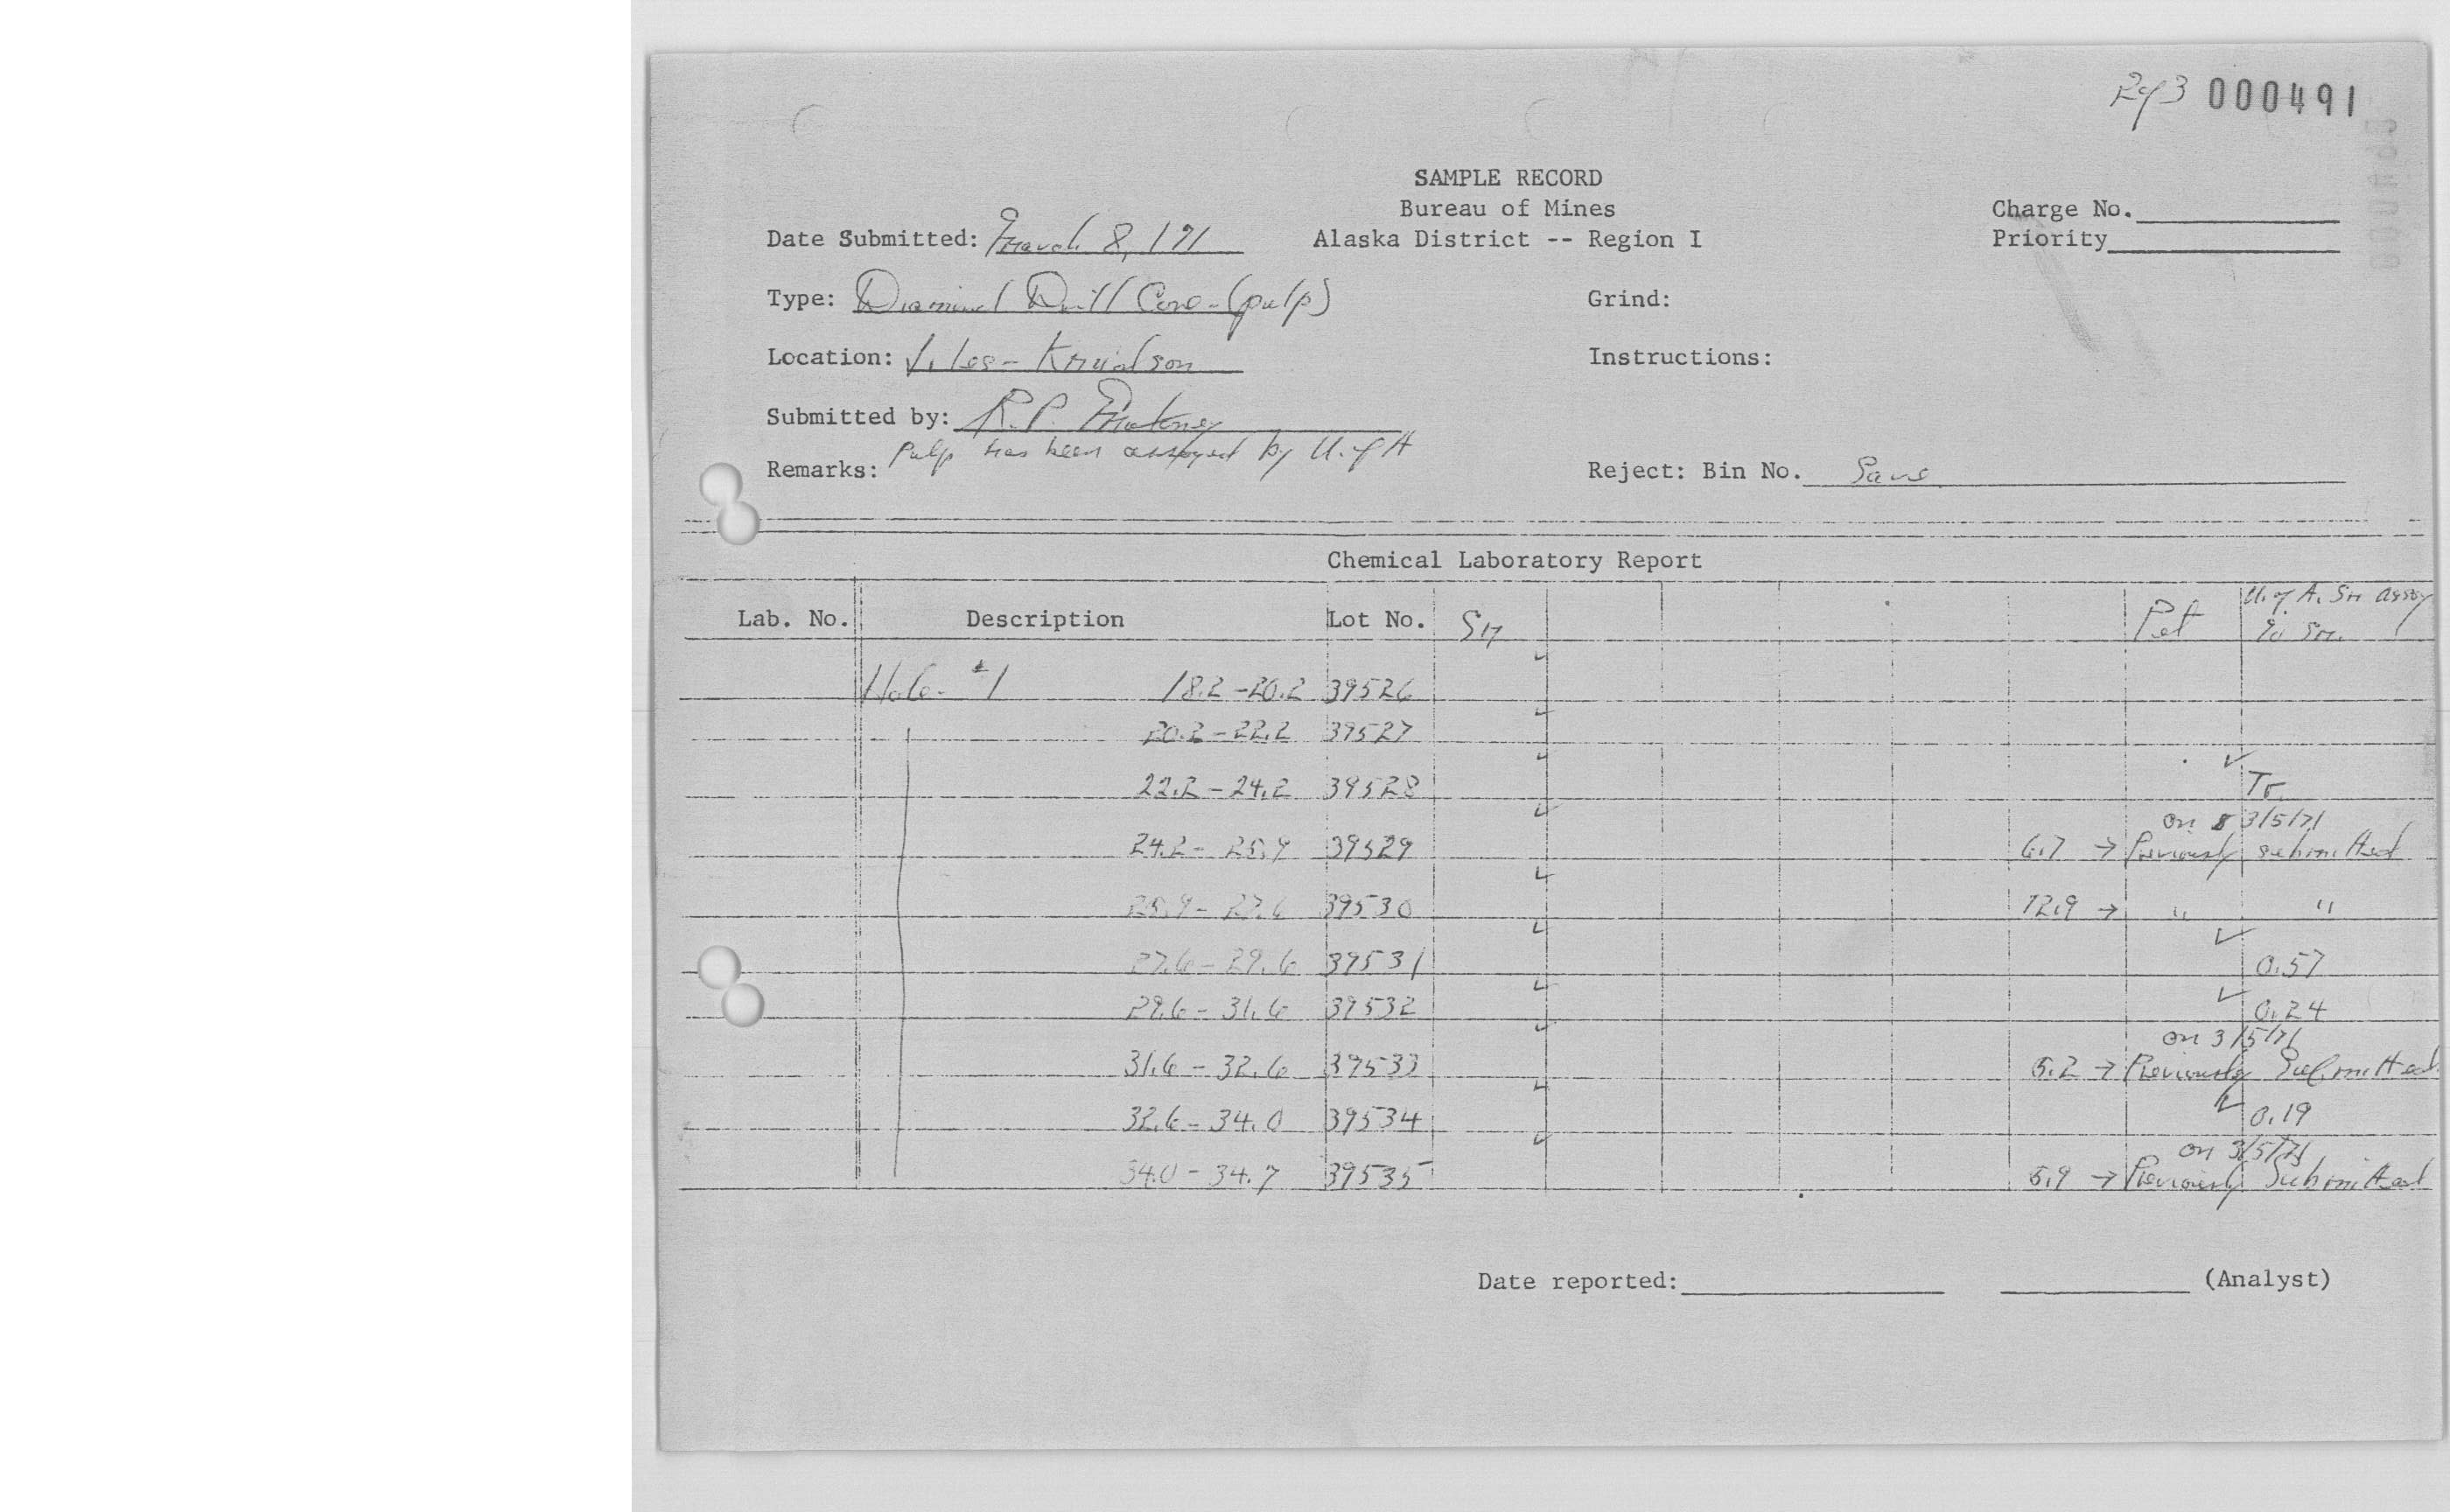 000491
SAMPLE RECORD
Bureau of Mines
Alaska District -- Region I
Charge No.
Priority
Date Submitted: March 8, 171
Type: Diamond Drill Core - (pulp)
Grind:
Location: - Knudson
Instructions:
Submitted by: R.P.
Remarks: Pulp has been assayed by U. of A
Reject: Bin No. Save
Chemical Laboratory Report
Lab. No. Description Lot No. Sn Pct U. of A. Sn assay
% Sn.
Hole #1 18.2 - 20.2 39526
20.2 - 22.2 39527
22.2 - 24.2 39528 Tr.
on 3/5/71
24.2 - 25.9 39529 6.7 → Previously submitted
25.9 - 27.6 39530 12.9 → " "
27.6 - 29.6 39531 0.57
29.6 - 31.6 39532 0.24
on 3/5/71
31.6 - 32.6 39533 5.2 → Previously Submitted
32.6 - 34.0 39534 0.19
on 3/5/71
34.0 - 34.7 39535 5.9 → Previously Submitted
Date reported: (Analyst)